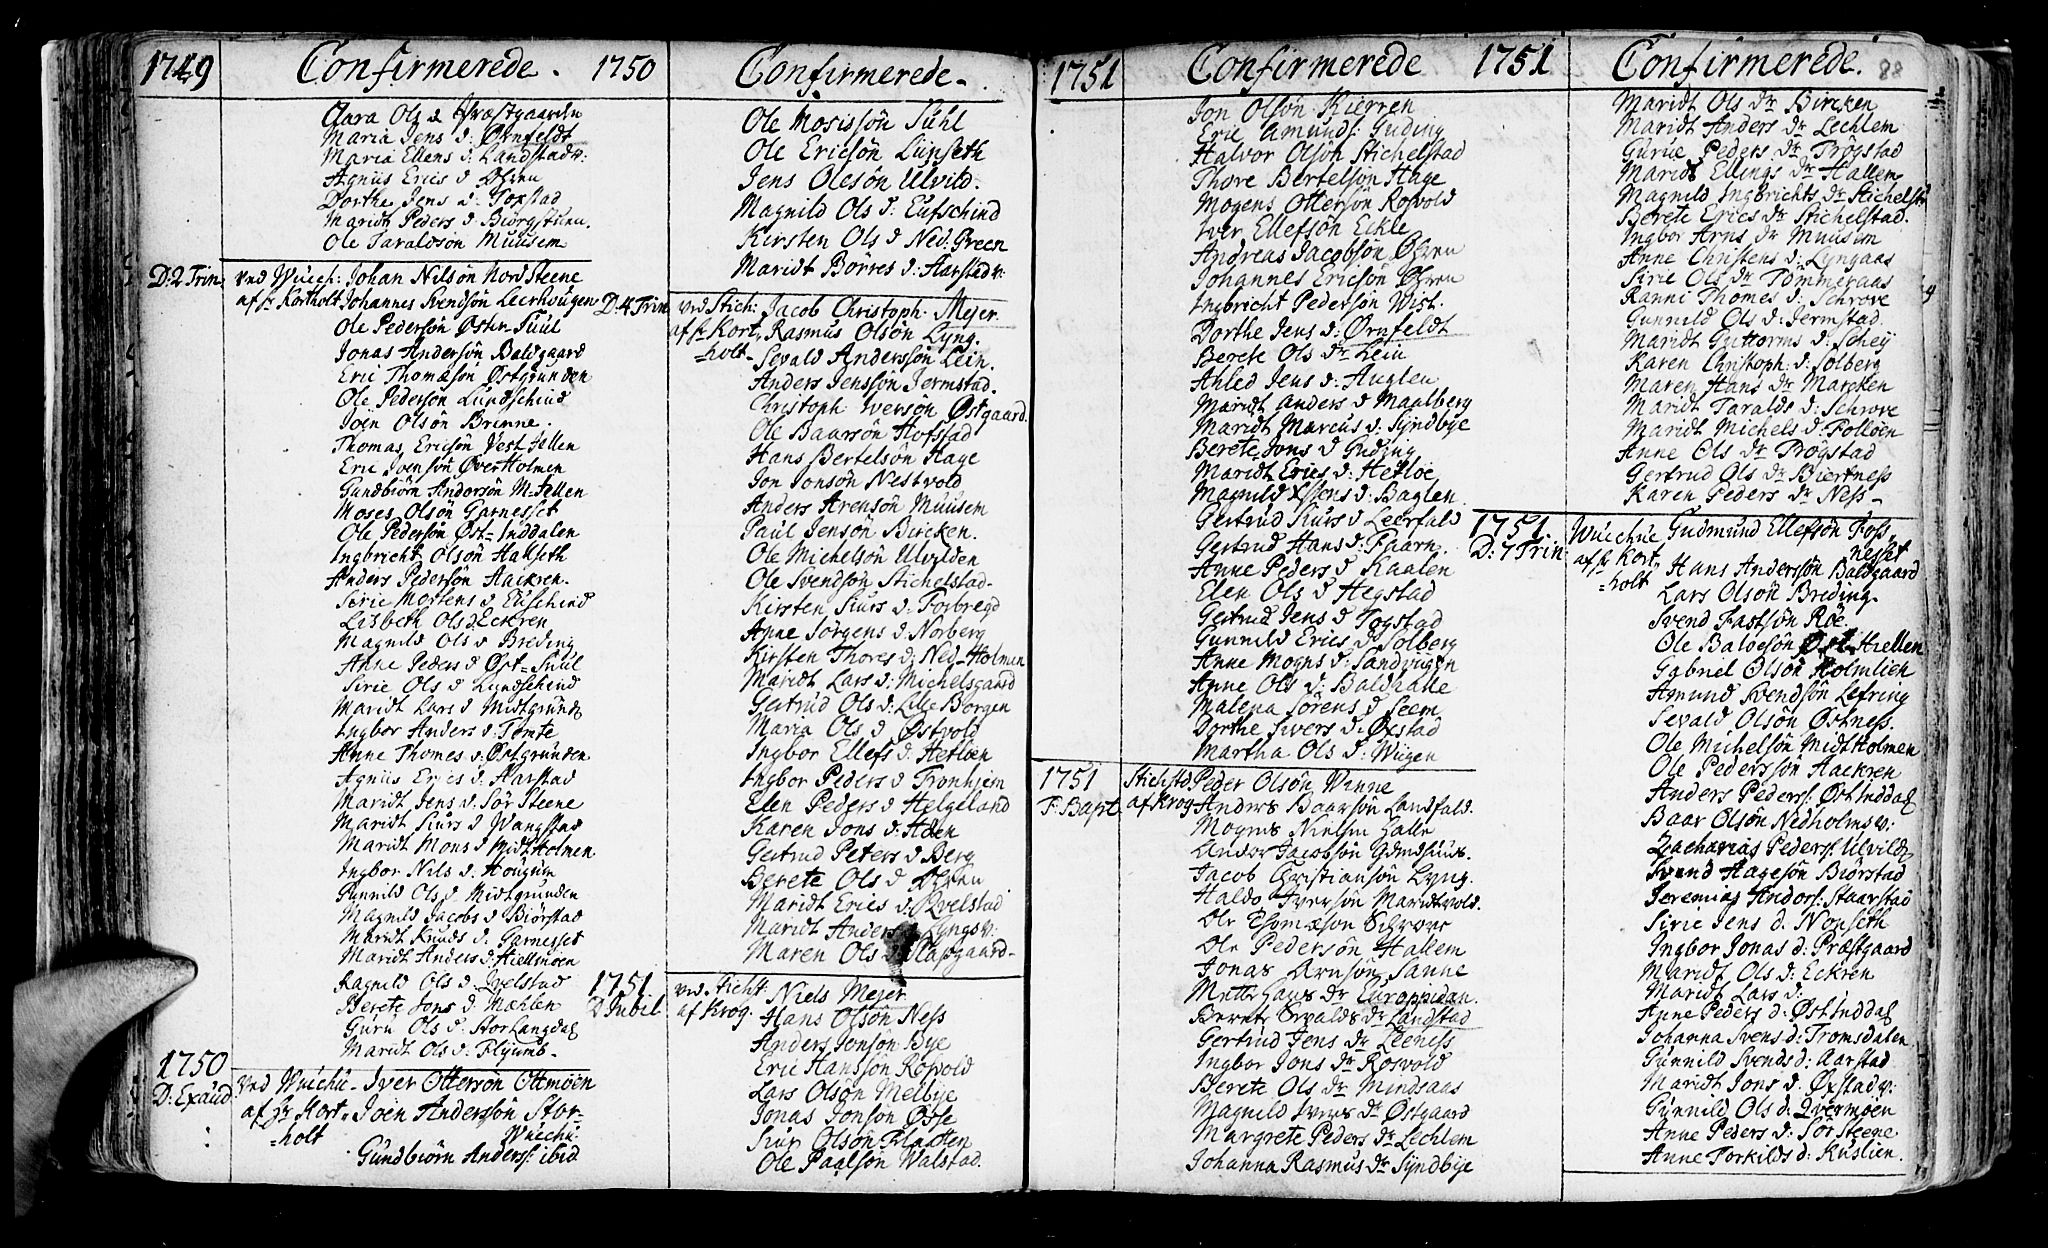 1749 Confirmerede.
Clara Ols d Præstgaarden
Maria Jens d: Ørnfeldt
Maria Ellens d: Landstadv:
Agniis Erics d Ohren
Dorthe Jens d: Togstad
Maridt Peders d Biörgstuen.
Ole Taraldsön Muusem
D: 2 Trin. ved Wuech: Johan Nilsön Nordsteene
af hr Kortholt Johannes Svendsön Leerhougen
Ole Pedersön Østre Suul
Jonas Andersön Baldgaard
Eric Thomæsön Østgrunden
Ole Pedersön Lundschind
Joen Olsön Brenne.
Thomas Ericsön Vest Jellen
Eric Joensön Øver Holmen
Gundbiörn Andersön M-Jellen
Moses Olsön Garnesset
Ole Pedersön Øst-Inddalen
Ingbricht Olsön Hakseth
Anders Pedersön Aackren.
Sirie Mortens d Euschind
Lisbeth Ols d: Eckren
Magnild Ols d Breding
Anne Peders d Øst-Suul
Sirie Ols d Lundschind
Maridt Lars d Midtgrund
Ingbor Anders d: Tomte
Anne Thomes d: Østgrunden
Agniis Erics d: Aarstad
Maridt Jens d: Sör Steene
Maridt Siurs d Wangstad
Maridt Mons d Midt Holmen
Ingbor Nils d: Hougum
Gunnild Ols d Midtgrunden
Magnild Jacobs d Biörstad
Maridt Knuds d: Garnesset
Maridt Anders d: Hiellmoen
Ragnild Ols d: Qvelstad
Berete Jons d: Mæhlen
Guru Ols d: Stor Langdal
Maridt Ols d: Flyumb-
1750
D: Exaud: ved Wuechu- Iver Ottersön Ottmoen
af hr Kort- Joen Andersön Stor-
=holt Wuechu:
Gundbiörn Anders: ibid
1750 Confirmerede.
Ole Mosissön Suhl
Ole Ericsön Lunseth
Jens Olesön Ulvild.
Magnild Ols d: Eufschind
Kirsten Ols d Ned. Green
Maridt Börres d: Aarstadv:
D: 4 Trin ved Stich: Jacob Christoph. Mejer.
af hr Kort- Rasmus Olsön Lyng.
=holt- Sevald Anderssön Lein.
Anders Jenssön Jermstad.
Christoph Iversön Østgaard.
Ole Baarsön Hofstad
Hans Bertelsön Hage
Jon Jonsön Nestvold
Anders Arensön Muusem
Paul Jensön Bircken.
Ole Michelsön Ulvilden
Ole Svendsön Stichelstad.
Kirsten Siurs d: Forbregd
Anne Jörgens d: Norberg
Kirsten Thores d: Ned-Holman
Maridt Lars d: Michelsgaard
Gertrud Ols d: Lille Borgen
Maria Ols d Østvold
Ingbor Ellefs d: Hetloen
Ingbor Peders d Tronhiem
Elen Peders d Helgeland
Karen Jons d: Aden
Gertrud Peters d Berg
Berete Ols d Ohren
Maridt Erics d: Qvelstad
Maridt Anders Lyngsv:
Maren Ols d Klapgaard-
1751
D Jubil ved Sticht: Niels Mejer
af Krog. Hans Olsön Ness
Anders Jonsön Bye
Eric Hansön Rosvold
Lars Olsön Melbye
Jonas Jonsön Oppe
Siur Olsön Flatten
Ole Paalsön Walstad.
1751 Confirmerede
Jon Olsön Kierren
Eric Amunds: Guding
Halvor Olsön Stichelstad
Thore Bertelsön Hage
Mogens Ottersön Rosvold
Iver Ellefsön Eckle
Andreas Jacobsön Øhren
Johannes Ericsön Øhren
Ingbricht Pedersön Wist.
Dorthe Jens d: Ørnfeldt
Berete Ols dr Lein
Ahled Jens d: Auglen
Maridt Anders d Maalberg
Maridt Marcus d: Syndbye
Berete Jons d Guding
Maridt Erics d: Hetloe
Magnild Essens d: Baglen
Gertrud Siurs d Leerfald
Gertrud Hans d: Faarn.
Anne Peders d Kaalen
Elen Ols d Hegstad
Gertrud Jens d Togstad
Gunnild Erics d Solberg
Anne Mogns d: Sandvigen
Anne Ols d: Baldhalle
Malena Sörens d Seem
Dorthe Sivers d: Øxstad
Martha Ols d: Wiigen
1751 Stichstd Peder Olsön Vinne
F: Bapt. af Krog Anders Baarsön Landfald.
Mogens Nielsen Halle
Andor Jacobsön Gomdhuus.
Jacob Christiansön Lyng.
Haldo Iversön Maridtvold.
Ole Thomæson Schrove
Ole Pedersön Hallem
Jonas Arnsön Sanne
Mette Hans dr Europpidan.
Berete Sevalds dr Landstad
Gertrud Jens dr Leeness
Ingbor Jons dr Rosvold
Berete Ols dr Mindsaas
Magnild Ivers dr Østgaard
Margrete Peders dr Lechlem
Johanna Rasmus dr Syndbye
1751 Confirmerede. 88
Maridt Ols dr Bircken
Maridt Anders dr Lechlem
Gurue Peders dr Trogstad
Maridt Ellings dr Hallem
Magnild Ingbrichts dr Stichelst
Berete Erics dr Stichelstad.
Ingbor Arns dr Muusem
Anne Christens d: Lyngaas
Sirie Ols dr Tömmeraas
Ranni Thomes d: Schrove
Gunnild Ols d: Jermstad
Maridt Guttorms d: Schey
Karen Christoph: d: Solberg
Maren Hans dr Marcken
Maridt Taralds d: Schrove
Maridt Michels d: Folloen
Anne Ols dr Trogstad
Gertrud Ols dr Biertness
Karen Peders dr Ness-
1751. Wuechue Gudmund Ellefsön Foss,
D: 7 Trin: af hr Kort- nesset
=holt Hans Anderssön Baldgaard
Lars Olsön Breding.
Svend Fastsön Röe.
Ole Baloesön Øst. Hiellen
Gabriel Olsön Holmlien
Amund Svendsön Lefring
Sevald Olsön Østness.
Ole Michelsön Midt Holmen
Ole Pederssön Aackren
Anders Peders: Øst Inddal
Baar Olsön Nedholmsv:
Zacharias Peders: Ulvild
Svend Hagesön Biörstad
Jeremias Anders: Staarstad
Sirie Jens d. Nonseth
Ingbor Jonas d: Præstgaard
Maridt Ols d: Eckren
Maridt Lars d:
Anne Peders d: Øst Inddal
Johanna Svens d: Tromsdalen
Gunnild Svends d: Aarstad
Maridt Jons d. Øxstadv:
Gunnild Ols d: Qvermoen
Anne Peders d: Sör Steene
Anne Torkilds d: Kuslien.